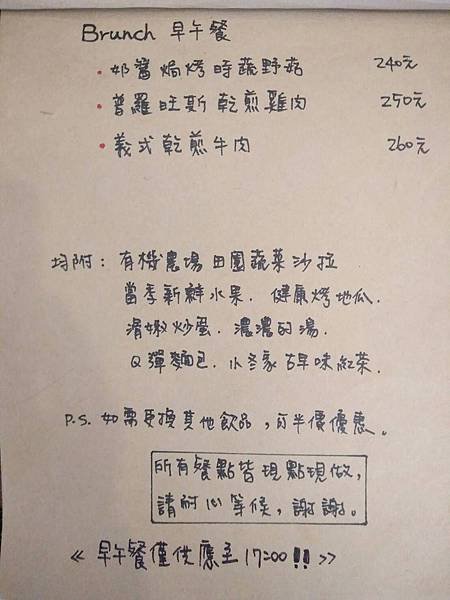 Brunch 早午餐
• 奶醬焗烤時蔬野菇 240元
• 普羅旺斯乾煎雞肉 250元
• 義式乾煎牛肉 260元
均附：有機農場田園蔬菜沙拉
當季新鮮水果．健康烤地瓜．
滑嫩炒蛋．濃濃的湯．
Q彈麵包．小冬家古早味紅茶．
P.S. 如需更換其他飲品，可半價優惠。
所有餐點皆現點現做，
請耐心等候，謝謝。
≪ 早午餐僅供應至17:00!! >>